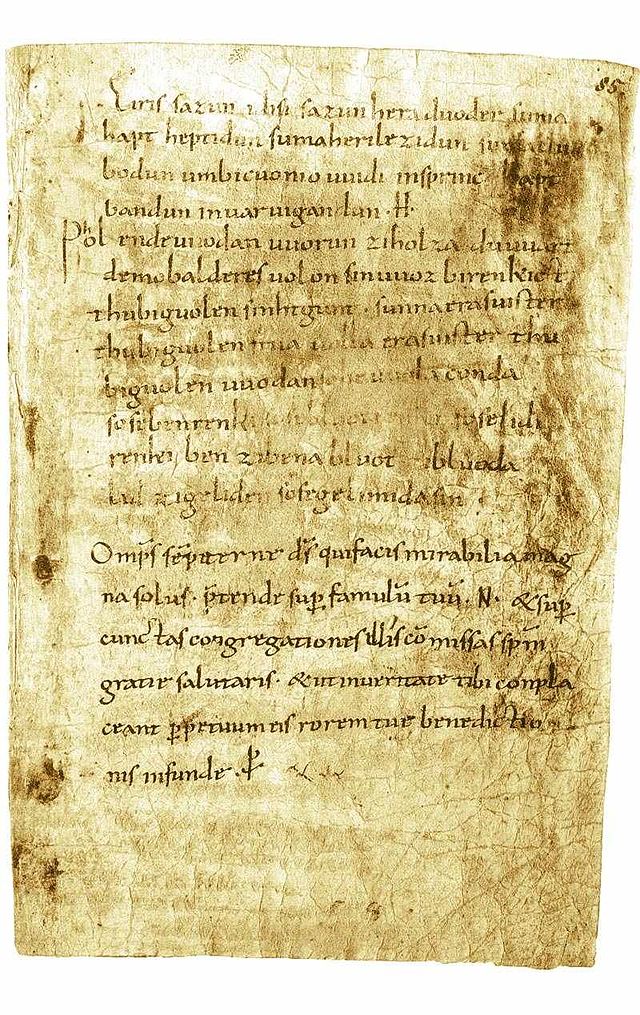 85
Eiris sazun idisi sazun hera duoder suma
hapt heptidun suma heri lezidun suma
bodun umbi cuonio uuidi insprinc hapt
bandun inuar uigandun · H ·
Phol ende uuodan uuorun zi holza du uuart
demo balderes uolon sin uuoz birenkict
thu biguolen sinhtgunt · sunna era suister
thu biguolen friia uolla era suister thu
biguolen uuodan so he uuola conda
sose benrenki sose lidi
renki ben zi bena bluot zi bluoda
lid zi geliden sose gelimida sin
Omps sēpiterne ds̄ qui facis mirabilia mag
na solus · p̄tende sup̄ famulū tuū · N · &sup̄
cunctas congregationes illis cō missas sp̄m
gratie salutaris · &ut inueritate tibi conpla
ceant p̱petuum eis rorem tuę benedictio
nis infunde · P̱